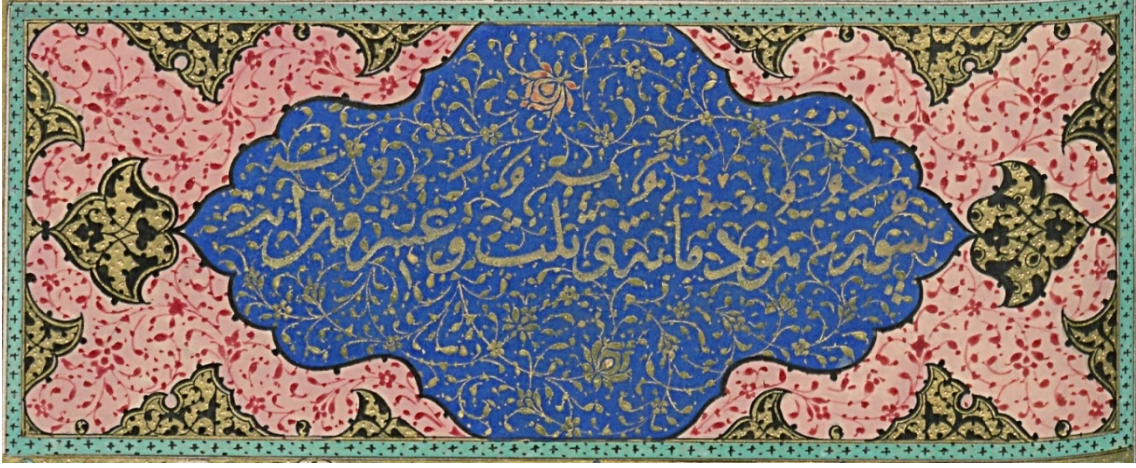 سورة هود مائة و ثلث و عشرون اية